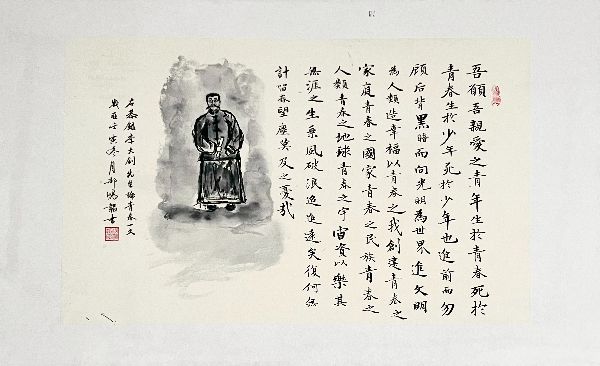 吾願吾親愛之青年生於青春死於
青春生於少年死於少年也進前而勿
顾后背黑暗而向光明為世界進文明
為人類造幸福以青春之我創建青春之
家庭青春之國家青春之民族青春之
人類青春之地球青春之宇宙資以樂其
無涯之生乘風破浪迢迢遠矣復何無
計留春望塵莫及之憂哉
右恭錄李大釗先生論青春一文
歲在壬寅冬月鴻書